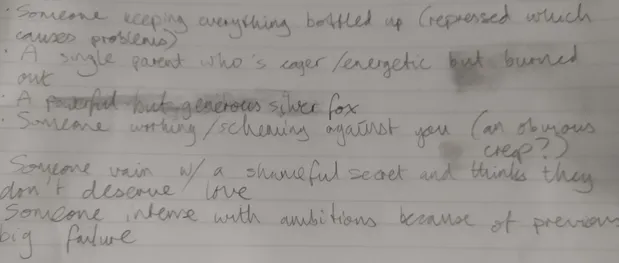 · Someone keeping everything bottled up (repressed which
causes problems)
· A single parent who's eager/energetic but burned
out
· A powerful but generous silver fox
· Someone working/scheming against you (an obvious
creep?)
Someone vain w/ a shameful secret and thinks they
don't deserve love
Someone intense with ambitions because of previous
big failure